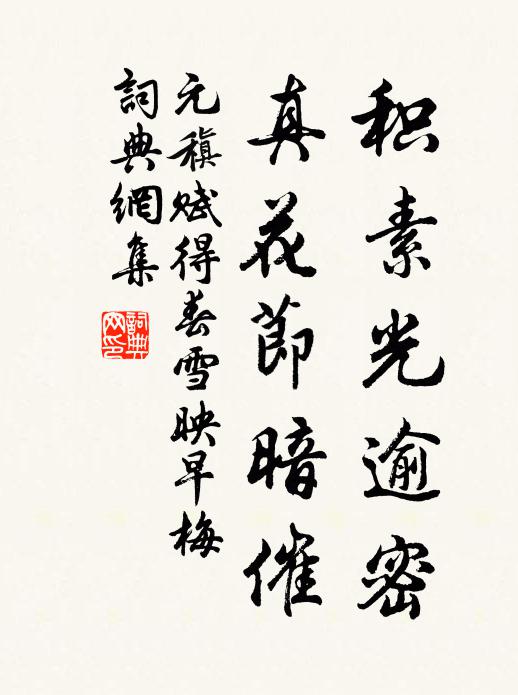 积素光逾密
真花节暗催
元稹赋得春雪映早梅
詞典網集
詞典网印